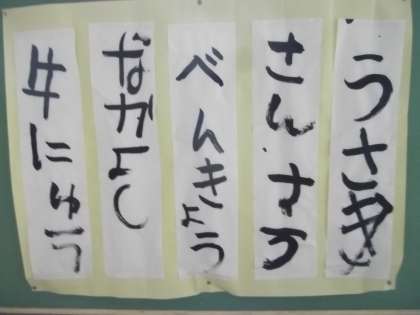 うさぎ
さんすう
べんきょう
なかよし
牛にゅう